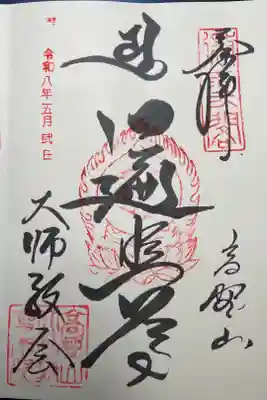 奉拝
高野山
遍照尊
令和八年五月弐日
大師教会